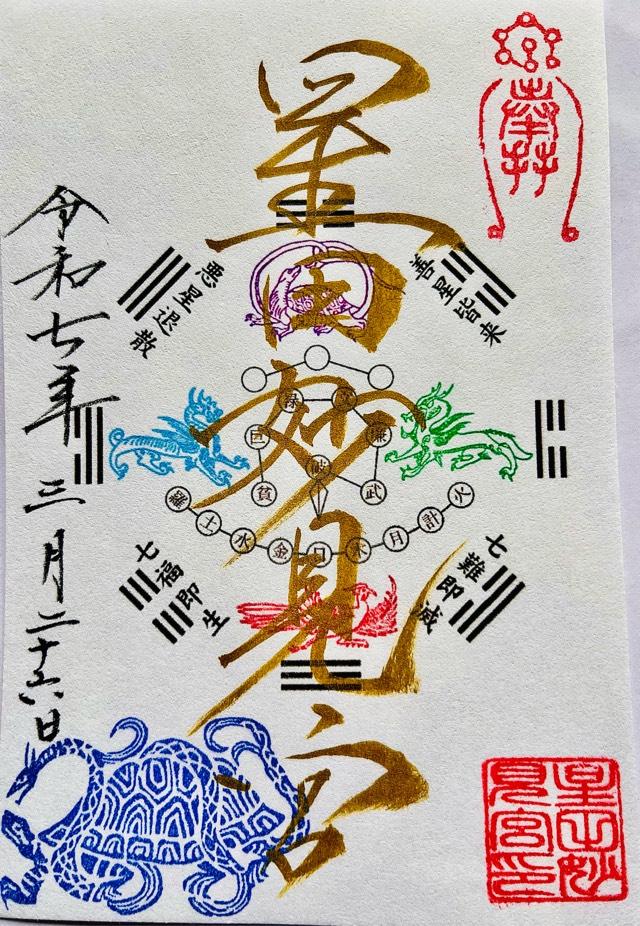 奉拝
星田妙見宮
善星皆来
悪星退散
七難即滅
七福即生
禄 文
巨 廉
破
貪 武
羅 土 水 金 日 木 月 計 火
令和七年 三月二十六日
星田妙
見宮印